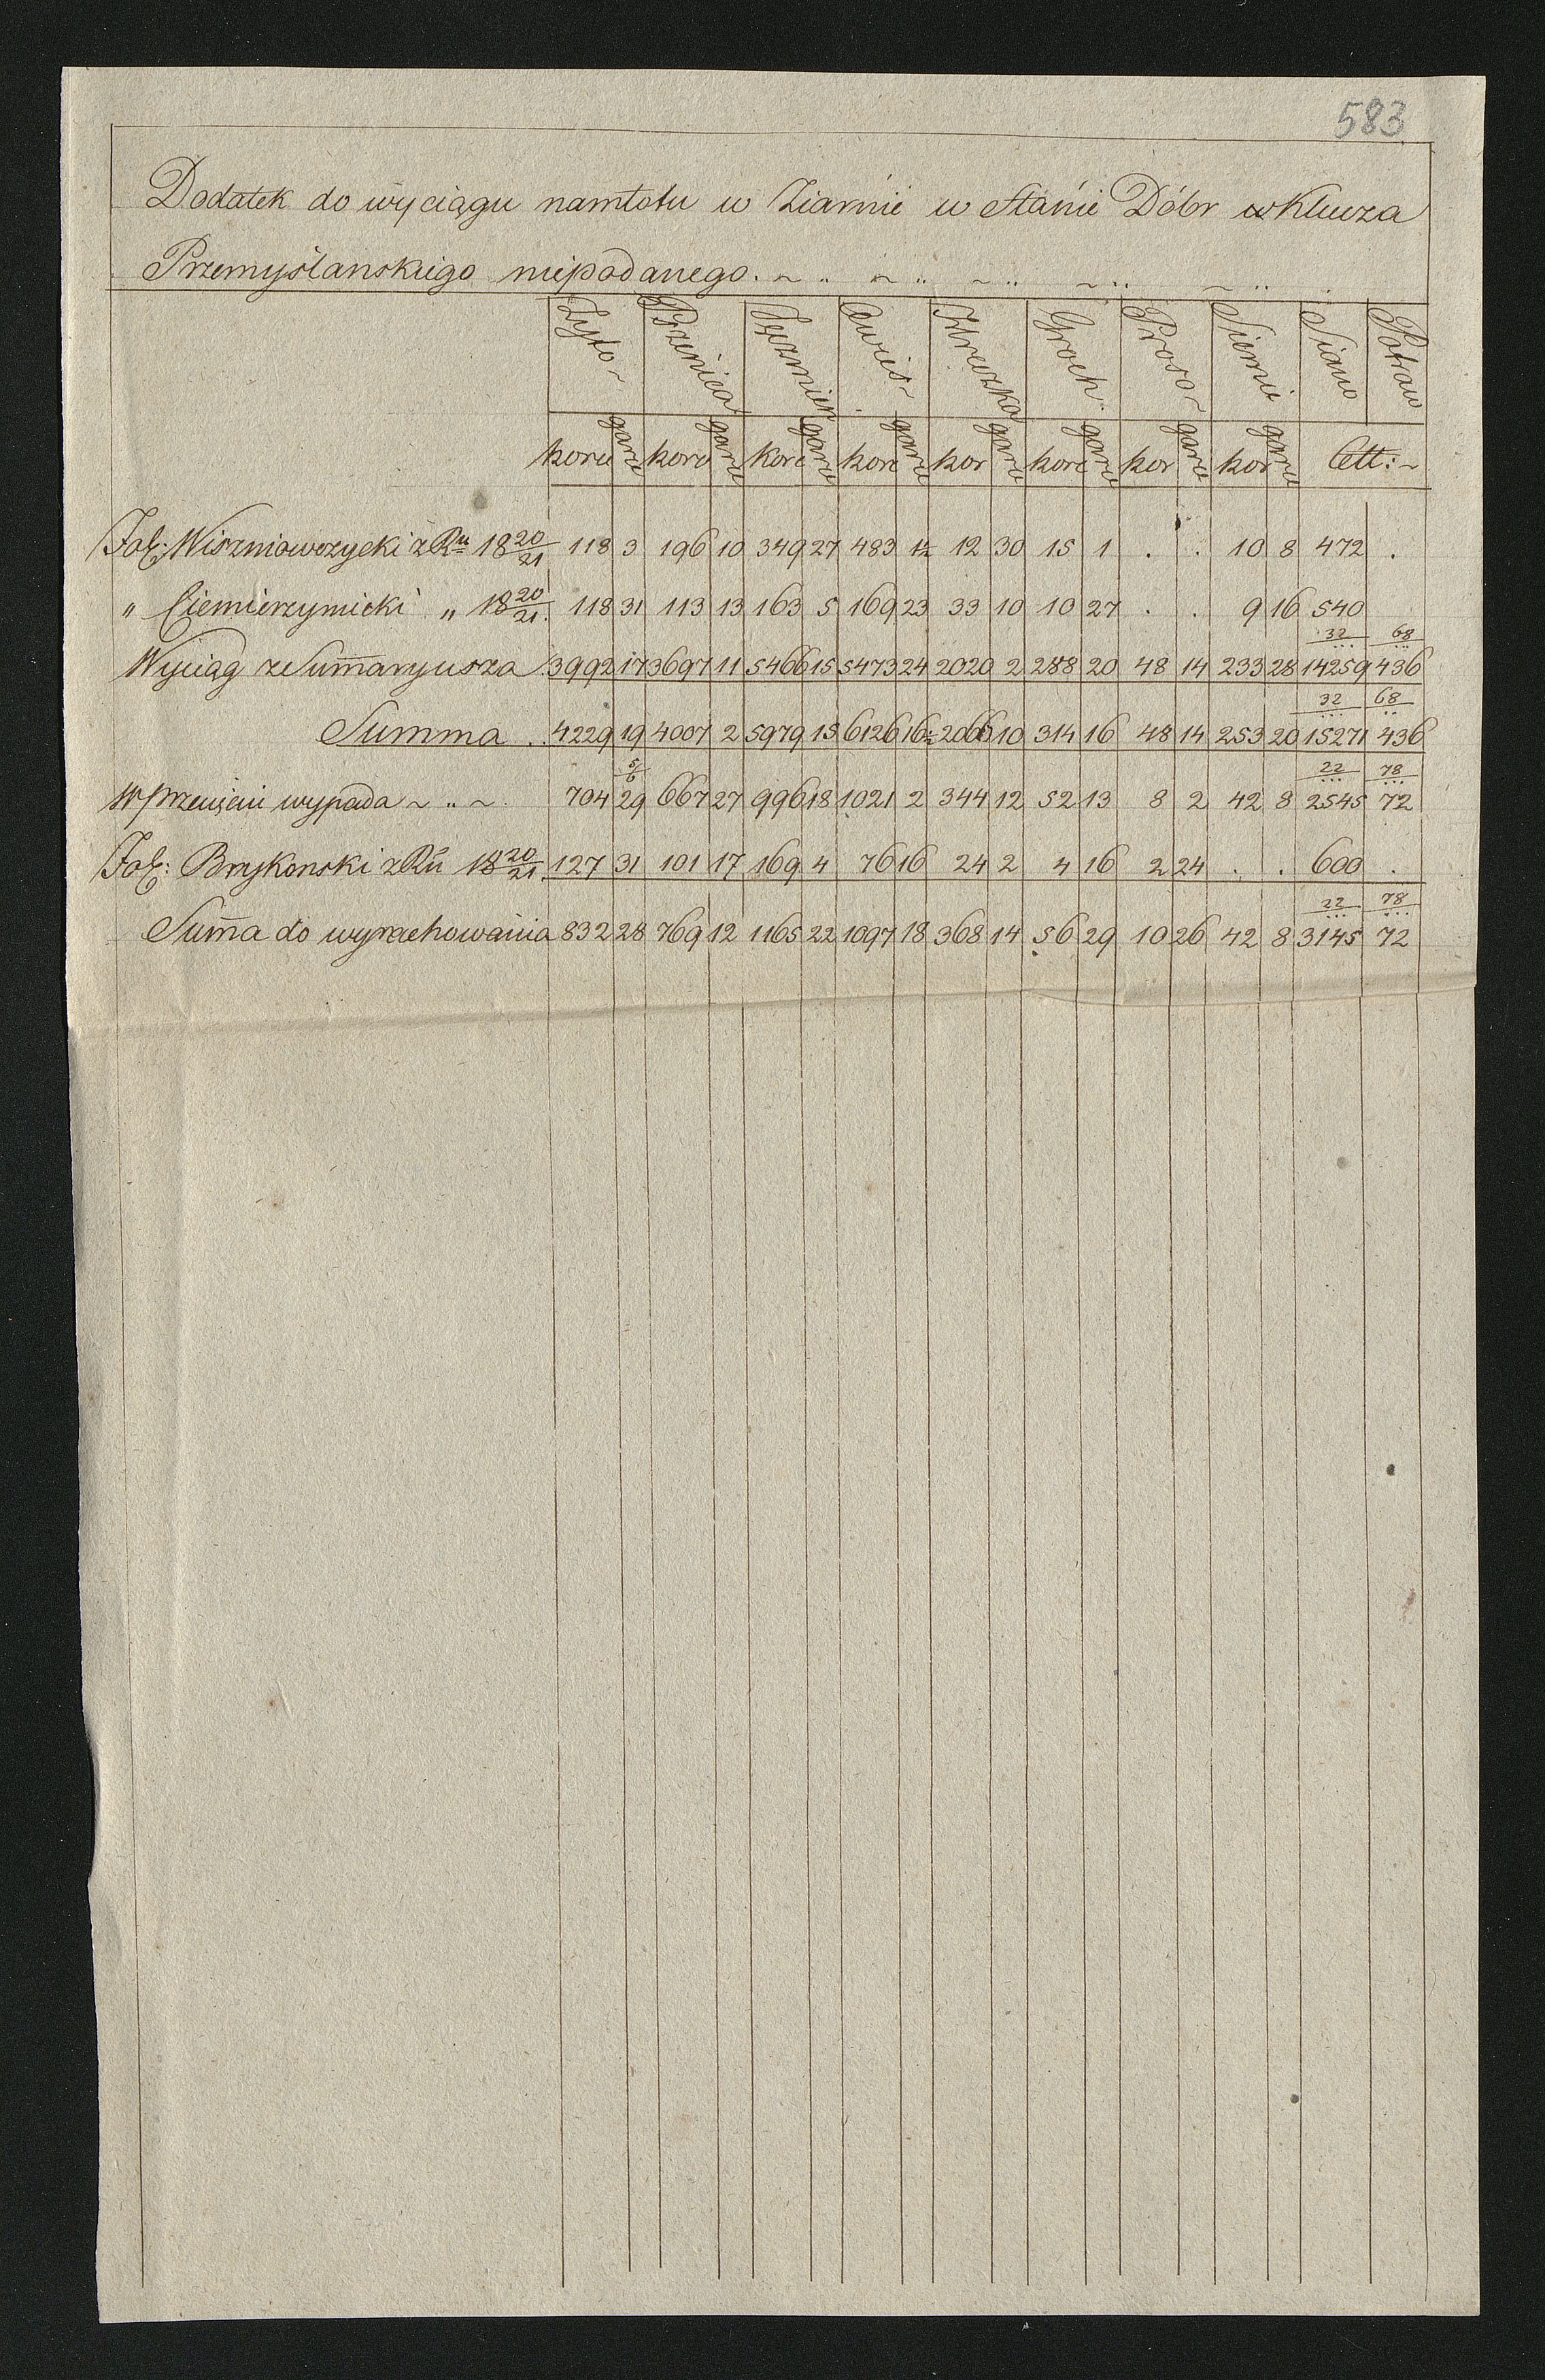 583
Dodatek do wyciągu namłotu w Ziarnie w Stanie Dóbr Klucza
Przemyslanskiego niepodanego. ~ „ ~ „ ~ „ ~ „ ~ „ .
Zyto ~ Pszenica Jęczmień Owies ~ Hreczka Groch. Proso ~ Siemie Siano Potraw
korce garce korce garce korce garce korce garce kor garce korce garce kor garce kor garce Ctt: ~
Fol: Wiszniowczycki z Ru 18 20/21 118 3 196 10 349 27 483 1½ 12 30 15 1 . . 10 8 472 .
„ Ciemierzynicki „ 18 20/21. 118 31 113 13 163 5 169 23 33 10 10 27 . . 9 16 540
32 68
Wyciąg ze Summaryusza 3992 17 3697 11 5466 15 5473 24 2020 2 288 20 48 14 233 28 14259 436
32 68
Summa . 4229 19 4007 2 5979 15 6126 16½ 2066 10 314 16 48 14 253 20 15271 436
5/6 22 78
W przecięciu wypada ~ „ ~ 704 29 667 27 996 18 1021 2 344 12 52 13 8 2 42 8 2545 72
Fol: Brykonski z Ru 18 20/21 127 31 101 17 169 4 76 16 24 2 4 16 2 24 . . 600 .
22 78
Suma do wyrachowania 832 28 769 12 1165 22 1097 18 368 14 56 29 10 26 42 8 3145 72